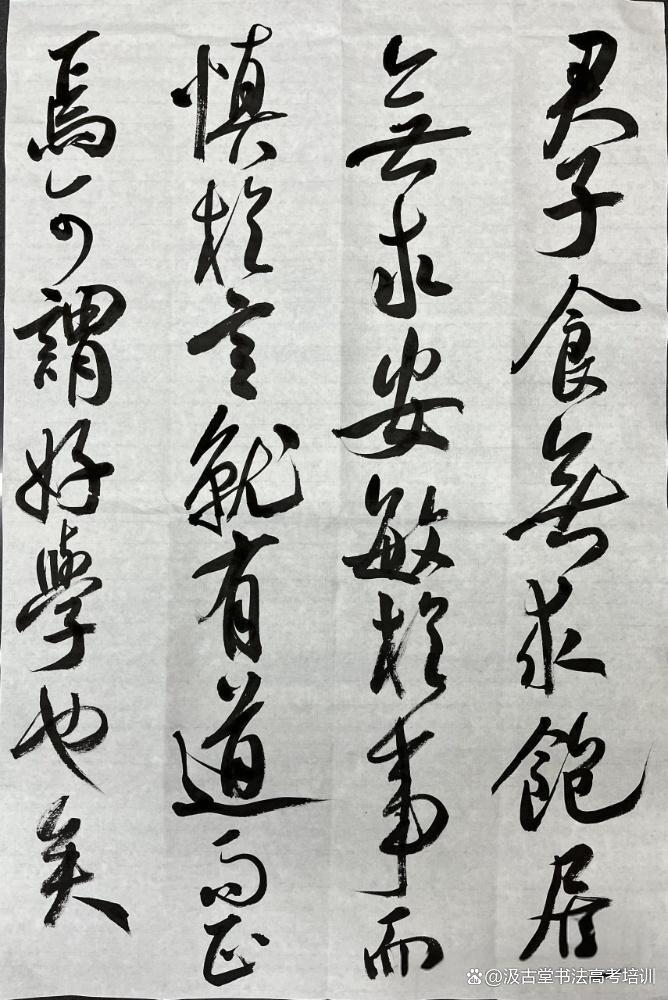 君子食無求飽居
無求安敏於事而
慎於言就有道而正
焉可謂好學也矣
@汲古堂书法高考培训